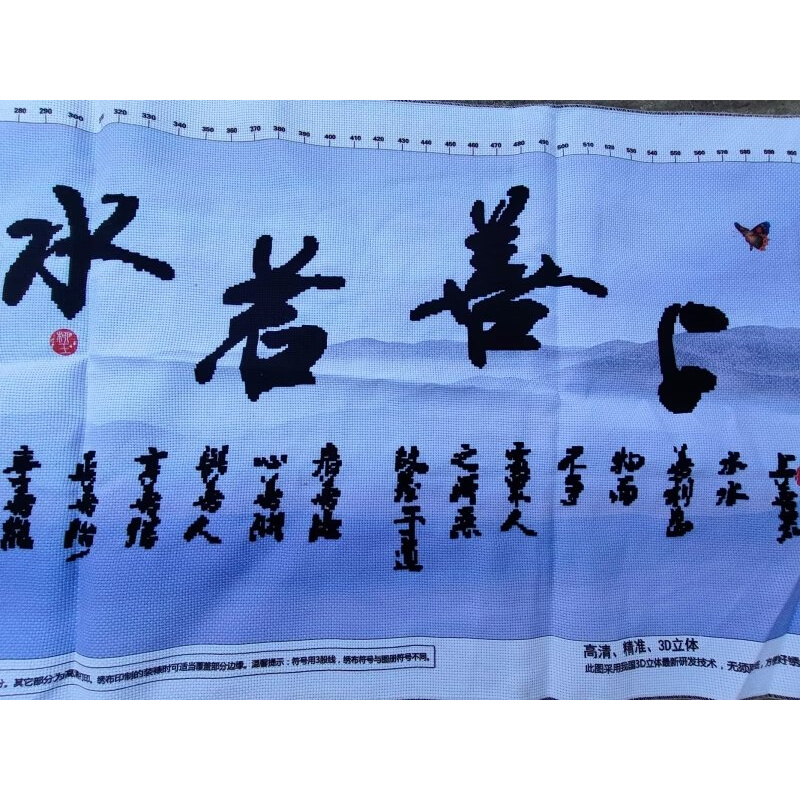 280 290 300 320 330 340 350 360 370 380 390 400 410 420 430 440 450 460 470 480 490 500 510 520 530 540 550 560 570 580 590
上善若水
上善若
水水
善利萬
物而
不争
處眾人
之所惡
故幾于道
居善地
心善渊
與善人
言善信
正善治
事善能
高清、精准、3D立体
此图采用我国3D立体最新研发技术，无须
其它部分为 印。绣布印制的装裱时可适当覆盖部分边缘。温馨提示：符号用3股线，绣布符号与图册符号不同。